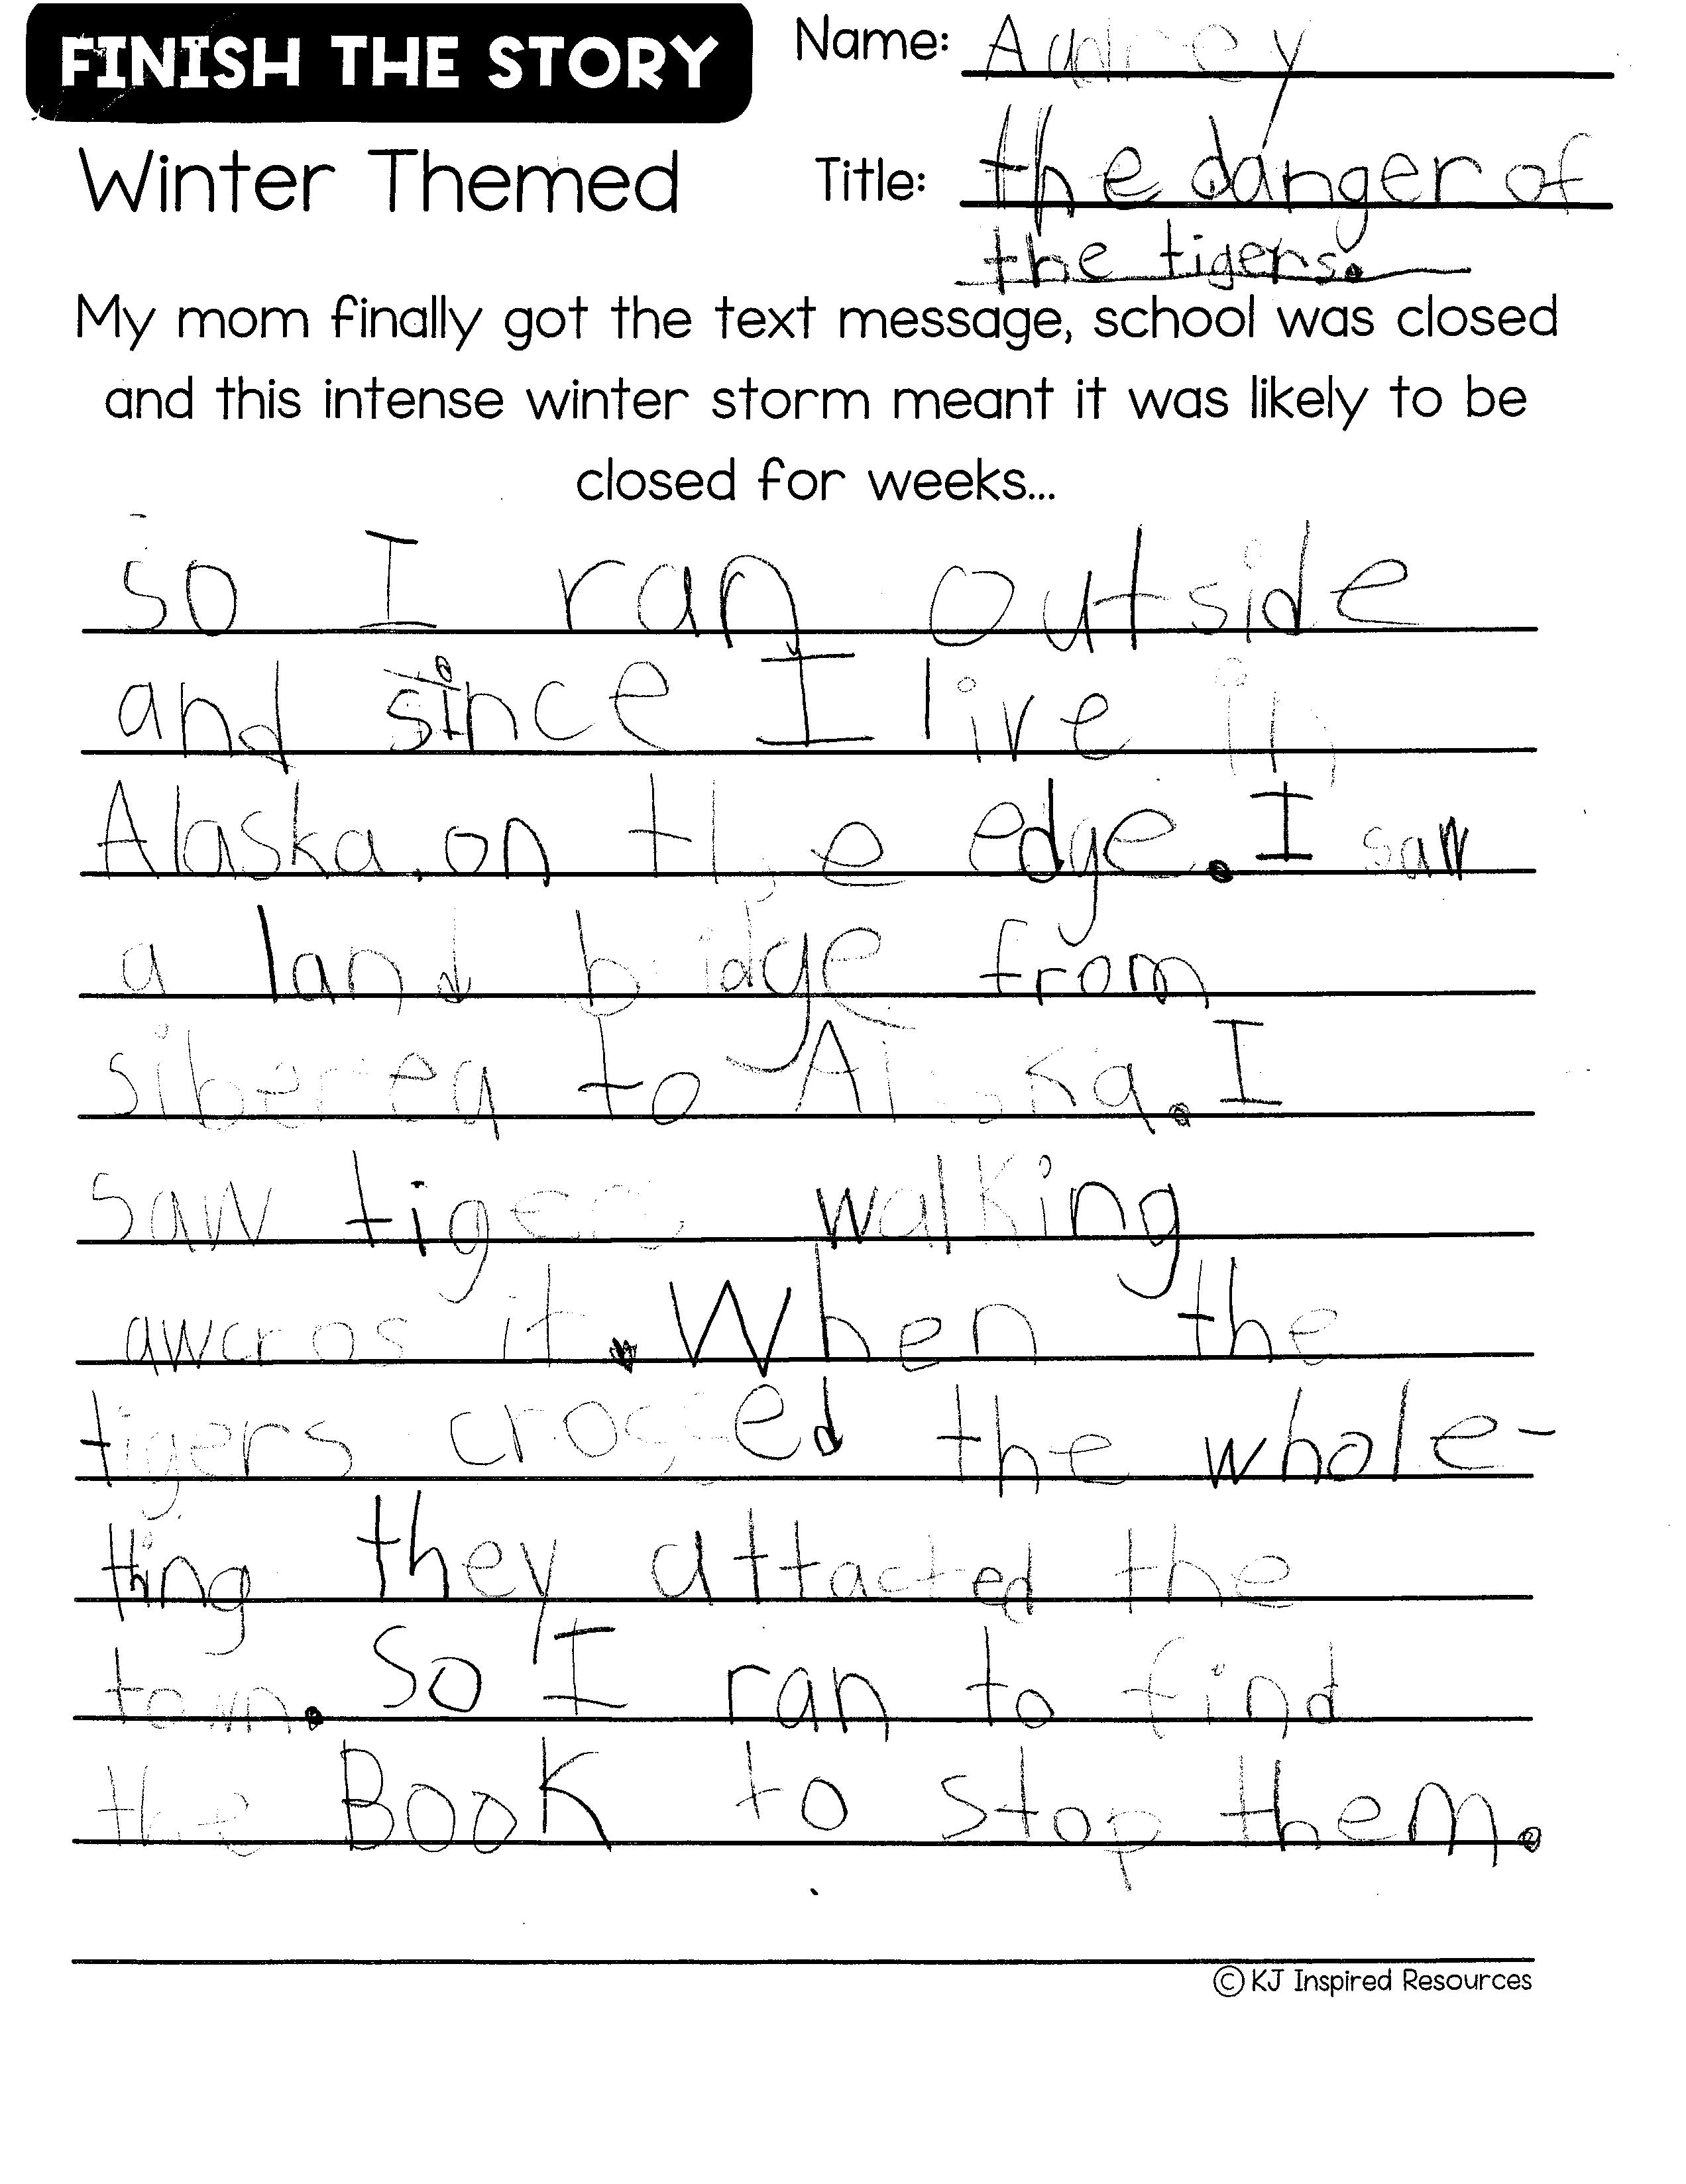 FINISH THE STORY
Name: Audrey
Winter Themed
Title: the danger of
the tigers.
My mom finally got the text message, school was closed
and this intense winter storm meant it was likely to be
closed for weeks...
so I ran outside
and since I live in
Alaska. on the edge. I saw
a land bridge from
siberea to Alaska. I
saw tigers walking
awcros it. When the
tigers crossed the whole-
thing they attacted the
town. So I ran to find
the Book to stop them.
© KJ Inspired Resources